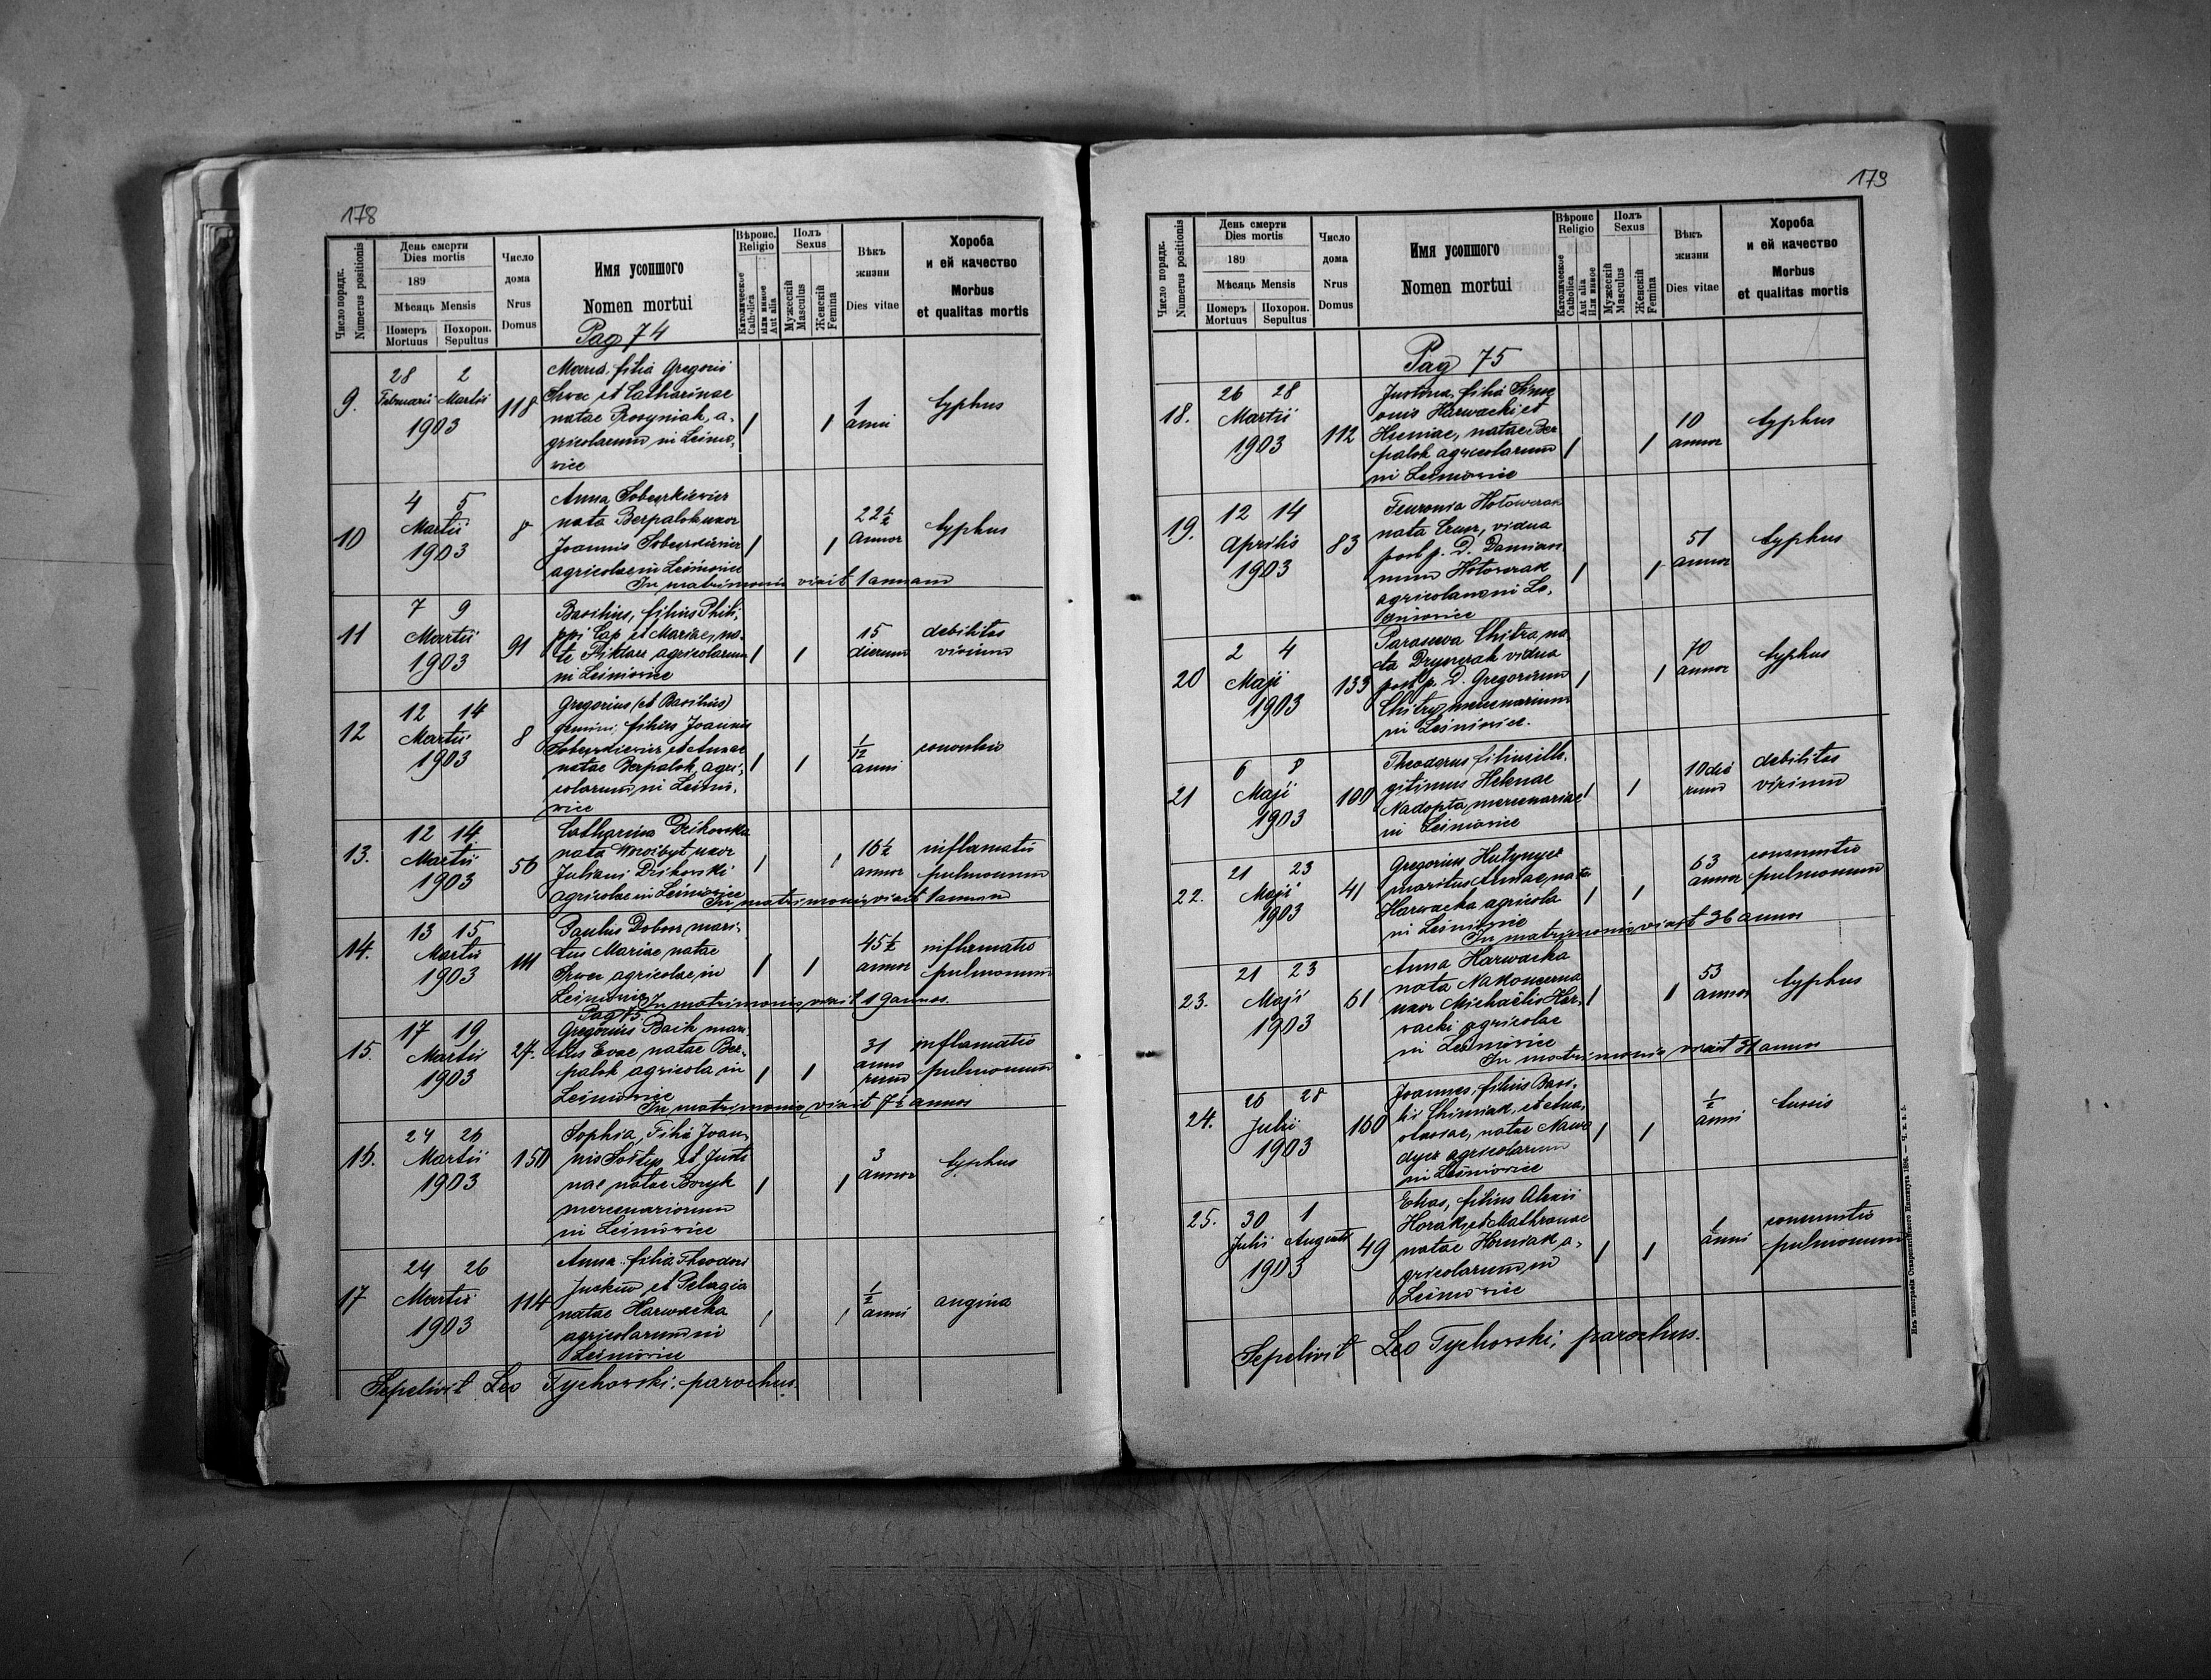 178
Число порядк.
Numerus positionis
День смерти
Dies mortis
189
Мѣсяць Mensis
Померъ
Mortuus
Похорон.
Sepultus
Число
дома
Nrus
Domus
Имя усопшого
Nomen mortui
Pag 74
Вѣроис.
Religio
Католическое
Catholica
или иное
Aut alia
Полъ
Sexus
Мужескій
Masculus
Женскій
Femina
Вѣкъ
жизни
Dies vitae
Хороба
и ей качество
Morbus
et qualitas mortis
9.
28 2
Februarii Martii
1903
118
Maria, filia Gregorii
et Catharinae
natae Prosyniak, a-
gricolarum in Leśnio-
wice
1
1
1
anni
typhus
10
4 5
Martii
1903
8
Anna Sobeszkiewicz
nata Berpalok uxor
Joannis Sobeszkiewicz
agricolae in Leśniowice
In matrimonio vixit 1 annum
1
1
22½
annor
typhus
11
7 9
Martii
1903
91
Basilius, filius Phili,
ppi Cap et Mariae, na-
te agricolarum
in Leśniowice
1
1
15
dierum
debilitas
virium
12
12 14
Martii
1903
8
Gregorius (et Basilius)
gemini, filius Joannis
Sobeszkiewicz et Annae
natae Berpalok, agri,
colarum in Leśnio,
wice
1
1
1/12
anni
13.
12 14
Martii
1903
56
Catharina Dzikowska
nata uxor
Juliani Dzikowski
agricolae in Leśniowice
In matrimonio vixit 1 annum
1
1
16½
annor
inflamatio
pulmonum
14.
13 15
Martii
1903
111
Paulus Dobosz, mari-
tus Mariae natae
agricolae, in
Leśniowice
In matrimonio vixit 19 annos.
1
1
45½
annor
inflamatio
pulmonum
Pag 75.
15.
17 19
Martii
1903
27.
Gregorius Baik mari
tus Evae natae Ber-
palok agricola in
Leśniowice
In matrimonio vixit 7½ annos
1
1
31
anno
rum
inflamatio
pulmonum
16.
24 26
Martii
1903
150
Sophia, Filia Joan,
nis et Justi
nae natae Boryk
mercenariorum
in Leśniowice
1
1
3
annor
typhus
17
24 26
Martii
1903
114
Anna filia Theodori
Juskiw et Pelagia
natae Harwacka
agricolarum in
Leśniowice
1
1
½
anni
angina
Sepelivit Leo Tychowski, parochus.
179
Число порядк.
Numerus positionis
День смерти
Dies mortis
189
Мѣсяць Mensis
Померъ
Mortuus
Похорон.
Sepultus
Число
дома
Nrus
Domus
Имя усопшого
Nomen mortui
Вѣроис
Religio
Католическое
Catholica
Aut alia
Или иное
Полъ
Sexus
Мужескій
Masculus
Женскій
Femina
Вѣкъ
жизни
Dies vitae
Хороба
и ей качество
Morbus
et qualitas mortis
Pag 75
18.
26 28
Martii
1903
112
Justina, filia Sime
onis Harwacki et
Xseniae, natae Ber
palok agricolarum
in Leśniowice
1
1
10
annor
typhus
19.
12 14
Aprilis
1903
83
Feuronia Hołowczak
nata vidua
post p. D. Damian
num Hołowczak
agricolam in Le,
śniowice
1
1
51
annor
typhus
20
2 4
Maji
1903
133
Parasceva Chitra, na
ta vidua
post p. D. Gregorium
Chitry mercenarium
in Leśniowice.
1
1
70
annor
typhus
21
6 8
Maji
1903
100
Theodorus filius ille,
gitimus Helenae
Nadopta, mercenariae
in Leśniowice
1
1
10 die
rum
debilitas
virium
22.
21 23
Maji
1903
41
Gregorius Hutynyez
maritus Annae, nata
Harwacka agricola
in Leśniowice
In matrimonio vixit 36 annos
1
1
63
annor
consumtio
pulmonum
23.
21 23
Maji
1903
61
Anna Harwacka
nata Nakoneczna
uxor Michaëlis Har-
wacki agricolae
in Leśniowice
In matrimonio vixit 31 annos
1
1
53
annor
typhus
24.
26 28
Julii
1903
160
Joannes, filius Basi-
lii et Ana,
stasiae, natae
agricolarum
in Leśniowice
1
1
½
anni
tussis
25.
30 1
Julii Augusti
1903
49
Elias, filius Alexii
Horak, et Mathronae
natae Horniak, a,
gricolarum in
Leśniowice
1
1
1
anni
consumtio
pulmonum
Sepelivit Leo Tychowski, parochus.
Изъ типографіи Ставропигійского Института 1896.